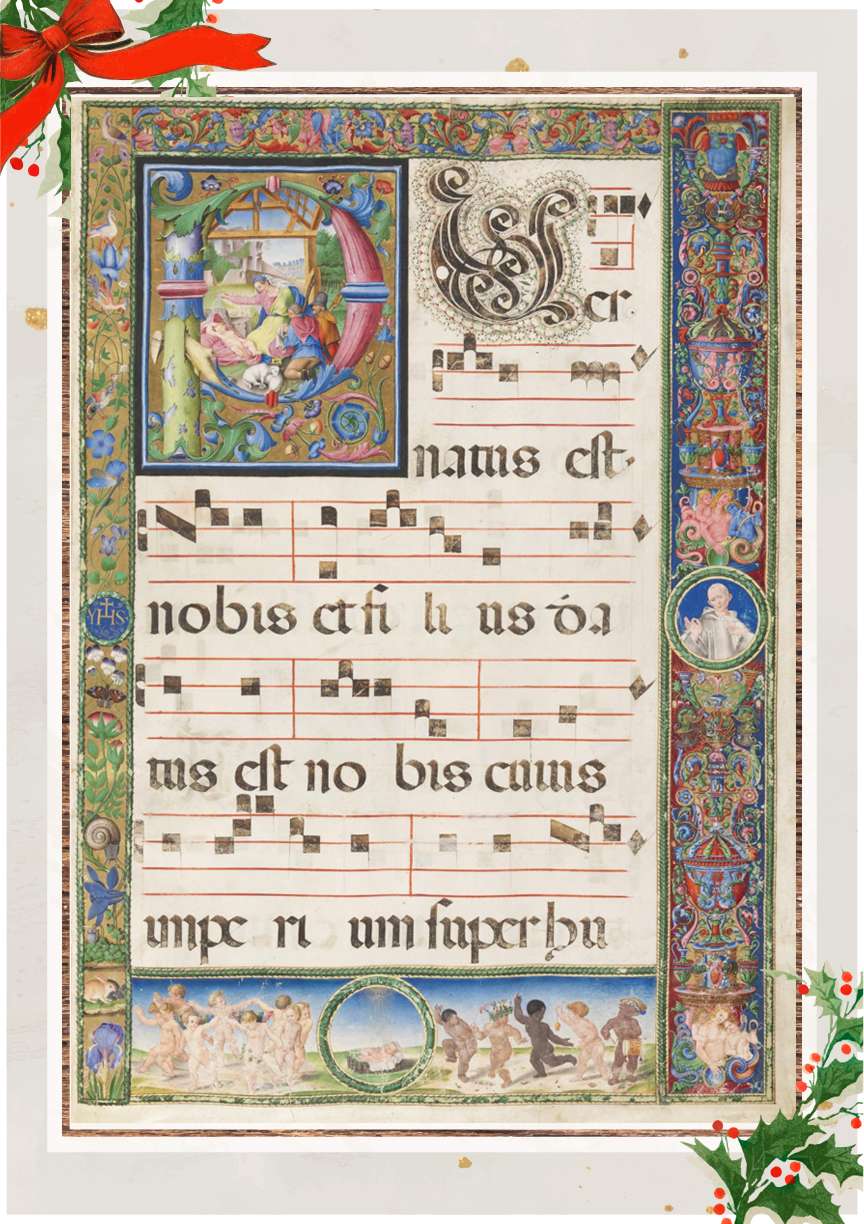 PVer
natus est
nobis et fi li us da
YHS
tus est no bis cuius
impe ri um super hu